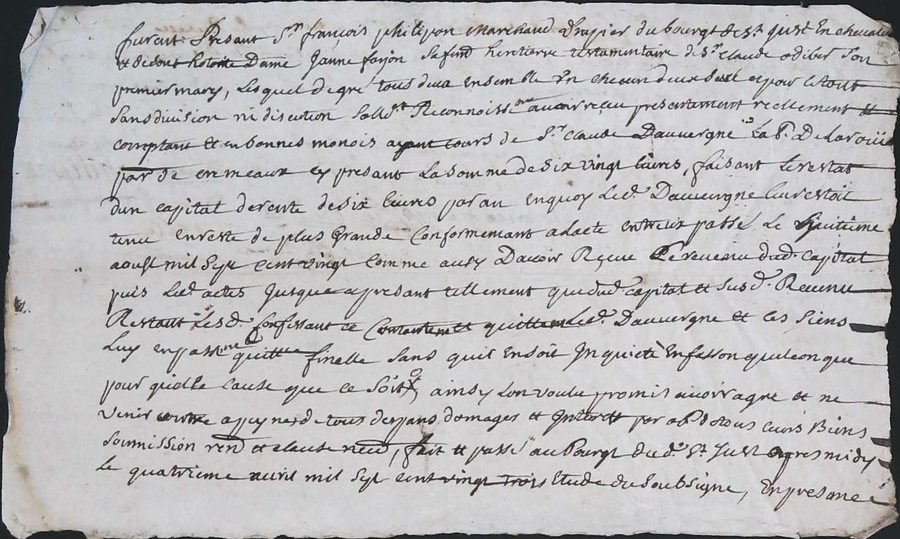 furent Presant Sr françois philipon Marchand drapier du bourg de St Just En chevalet
et de son hotorite Dame Janne farjon sa fame heritiere testamentaire de Sr claude odiber son
premier mary, Lesquel de gré tous deux ensemble Un checun deux seul et pour le tout
sans division ni discution solle. Reconnoisse avoir reçu presantement reellement et
comptant et en bonnes monois ayant cours de Sr claude Dauvergne
par de en meaux cy presant La somme de six vingt Livres, faisant Le restat
dun capital de rente de six Livres par an en quoy Led. Dauvergne Leurestoit
tenu en reste de plus grande Conformemant a lacte entreux passé Le huitieme
aoust mil sept cent vingt comme aussy Davoir Reçeue Le revenu dud. capital
puis Led. actes Jusque apresant tellement que dud. capital et susd. Revenu
Restant Lesd. Confessant ce Contantemt et quittent Led. Dauvergne et les siens
Luy en passent quitte finelle sans quil en soit Inquieté En fasson quelconque
pour quelle cause que ce soit, ainsy Lon voulu promis avoir agre et ne
venir contre a peyne de tous despans domages et Interest par obb. de tous Leurs Biens
soumission ren. et clause nece., fait et passé au Bourg dud. St Just apres midy
Le quatrieme avril mil sept cent vingt trois Etude du soubsigne, En presance